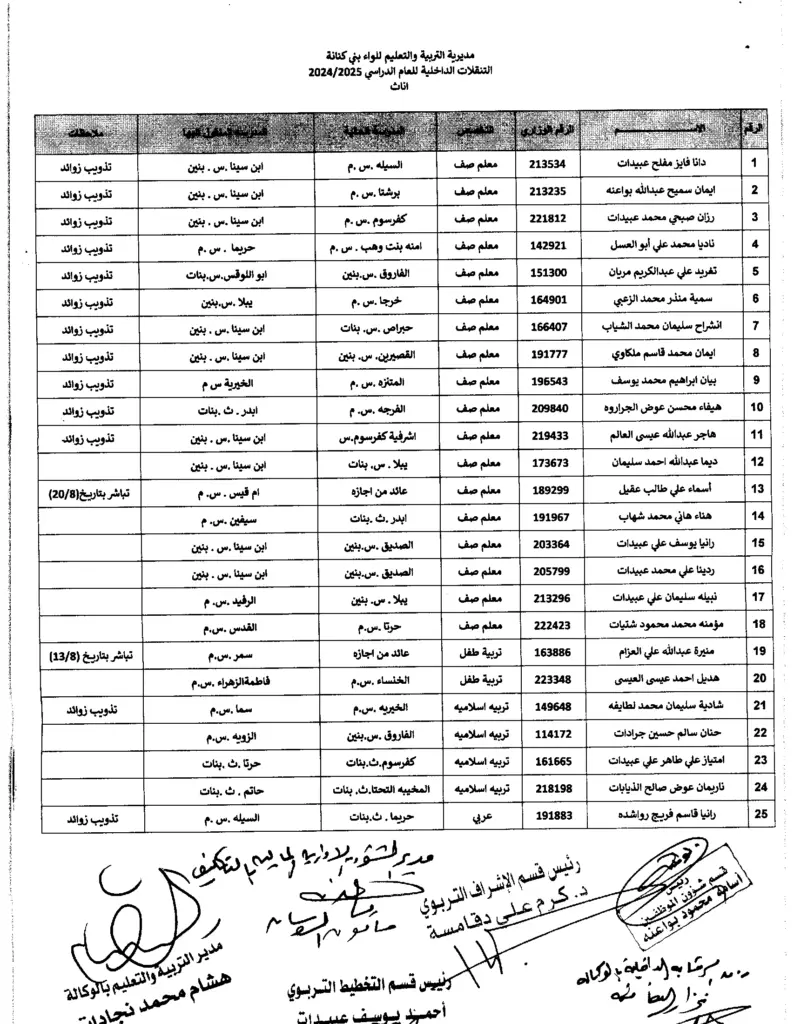 مديرية التربية والتعليم للواء بني كنانة
التنقلات الداخلية للعام الدراسي 2024/2025
اناث
الرقم الاســــــــم الرقم الوزاري التخصص المدرسة الحالية المدرسة المنقول اليها ملاحظات
1 دانا فايز مفلح عبيدات 213534 معلم صف السيله .س .م ابن سينا .س . بنين تذويب زوائد
2 ايمان سميح عبدالله بواعنه 213235 معلم صف برشتا .س .م ابن سينا .س . بنين تذويب زوائد
3 رزان صبحي محمد عبيدات 221812 معلم صف كفرسوم .س .م ابن سينا .س . بنين تذويب زوائد
4 ناديا محمد علي أبو العسل 142921 معلم صف امنه بنت وهب . س .م حريما . س .م تذويب زوائد
5 تغريد علي عبدالكريم مريان 151300 معلم صف الفاروق .س.بنين ابو اللوقس.س.بنات تذويب زوائد
6 سمية منذر محمد الزعبي 164901 معلم صف خرجا .س .م يبلا .س.بنين تذويب زوائد
7 انشراح سليمان محمد الشياب 166407 معلم صف حبراص .س. بنات ابن سينا .س . بنين تذويب زوائد
8 ايمان محمد قاسم ملكاوي 191777 معلم صف القصيرين. س. بنين ابن سينا .س . بنين تذويب زوائد
9 بيان ابراهيم محمد يوسف 196543 معلم صف المنتزه .س .م الخيرية س م تذويب زوائد
10 هيفاء محسن عوض الجراروه 209840 معلم صف الفرجه .س. م ابدر . ث. بنات تذويب زوائد
11 هاجر عبدالله عيسى العالم 219433 معلم صف اشرفية كفرسوم.س ابن سينا .س. بنين تذويب زوائد
12 ديما عبدالله احمد سليمان 173673 معلم صف يبلا . س. بنات ابن سينا .س. بنين
13 أسماء علي طالب عقيل 189299 معلم صف عائد من اجازه ام قيس . س. م تباشر بتاريخ(20/8)
14 هناء هاني محمد شهاب 191967 معلم صف ابدر .ث .بنات سيفين .س. م
15 رانيا يوسف علي عبيدات 203364 معلم صف الصديق .س.بنين ابن سينا .س . بنين
16 ردينا علي محمد عبيدات 205799 معلم صف الصديق .س. بنين ابن سينا .س . بنين
17 نبيله سليمان علي عبيدات 213296 معلم صف يبلا . س. بنين الرفيد .س. م
18 مؤمنه محمد محمود شتيات 222423 معلم صف حرتا .س. م القدس .س.م
19 منيرة عبدالله علي العزام 163886 تربية طفل عائد من اجازه سمر .س.م تباشر بتاريخ (13/8)
20 هديل احمد عيسى العيسى 223348 تربية طفل الخنساء .س.م فاطمةالزهراء .س.م
21 شادية سليمان محمد لطايفه 149648 تربيه اسلاميه الخيريه .س.م سما.س.م تذويب زوائد
22 حنان سالم حسين جرادات 114172 تربيه اسلاميه الفاروق .س.بنين الزويه .س.م
23 امتياز علي طاهر علي عبيدات 161665 تربيه اسلاميه كفرسوم.ث.بنات حرتا .ث .بنات
24 ناريمان عوض صالح الذيابات 218198 تربيه اسلاميه المخيبه التحتا.ث. بنات حاتم . ث. بنات
25 رانيا قاسم فريج رواشده 191883 عربي حريما . ث.بنات السيله .س. م تذويب زوائد
رئيس
قسم شؤون الموظفين
أسامة محمود بواعنه
رئيس قسم الإشراف التربوي
د. كرم علي دقامسة
رئيس قسم التخطيط التربوي
أحمد يوسف عبيدات
مدير التربية والتعليم بالوكالة
هشام محمد نجادات